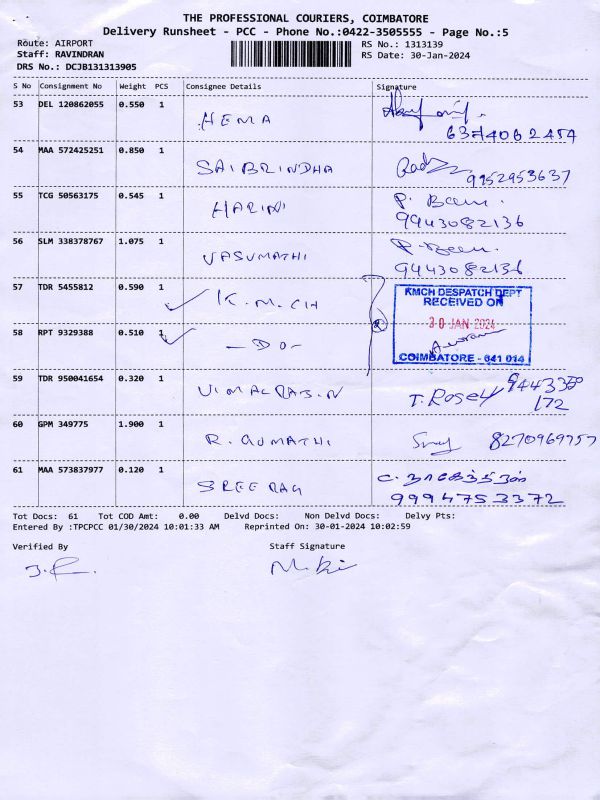 THE PROFESSIONAL COURIERS, COIMBATORE
Delivery Runsheet - PCC - Phone No.:0422-3505555 - Page No.:5
Route: AIRPORT
Staff: RAVINDRAN
DRS No.: DCJB131313905
RS No.: 1313139
RS Date: 30-Jan-2024
S No Consignment No Weight PCS Consignee Details Signature
53 DEL 120862055 0.550 1 HEMA
6374062454
54 MAA 572425251 0.850 1 SAIBRINDHA
9952953637
55 TCG 50563175 0.545 1 HARINI P. Beem.
9943082136
56 SLM 338378767 1.075 1 VASUMATHI P. Beem.
9443082136
57 TDR 5455812 0.590 1 K.M.CH
58 RPT 9329388 0.510 1 -DO-
KMCH DESPATCH DEPT
RECEIVED ON
30 JAN 2024
COIMBATORE - 641 014
59 TDR 950041654 0.320 1 VIMALRAJ.N T.Rosey
172
60 GPM 349775 1.900 1 R.GOMATHI 8270969757
61 MAA 573837977 0.120 1 SREERAG
9994753372
Tot Docs: 61 Tot COD Amt: 0.00 Delvd Docs: Non Delvd Docs: Delvy Pts:
Entered By :TPCPCC 01/30/2024 10:01:33 AM Reprinted On: 30-01-2024 10:02:59
Verified By Staff Signature